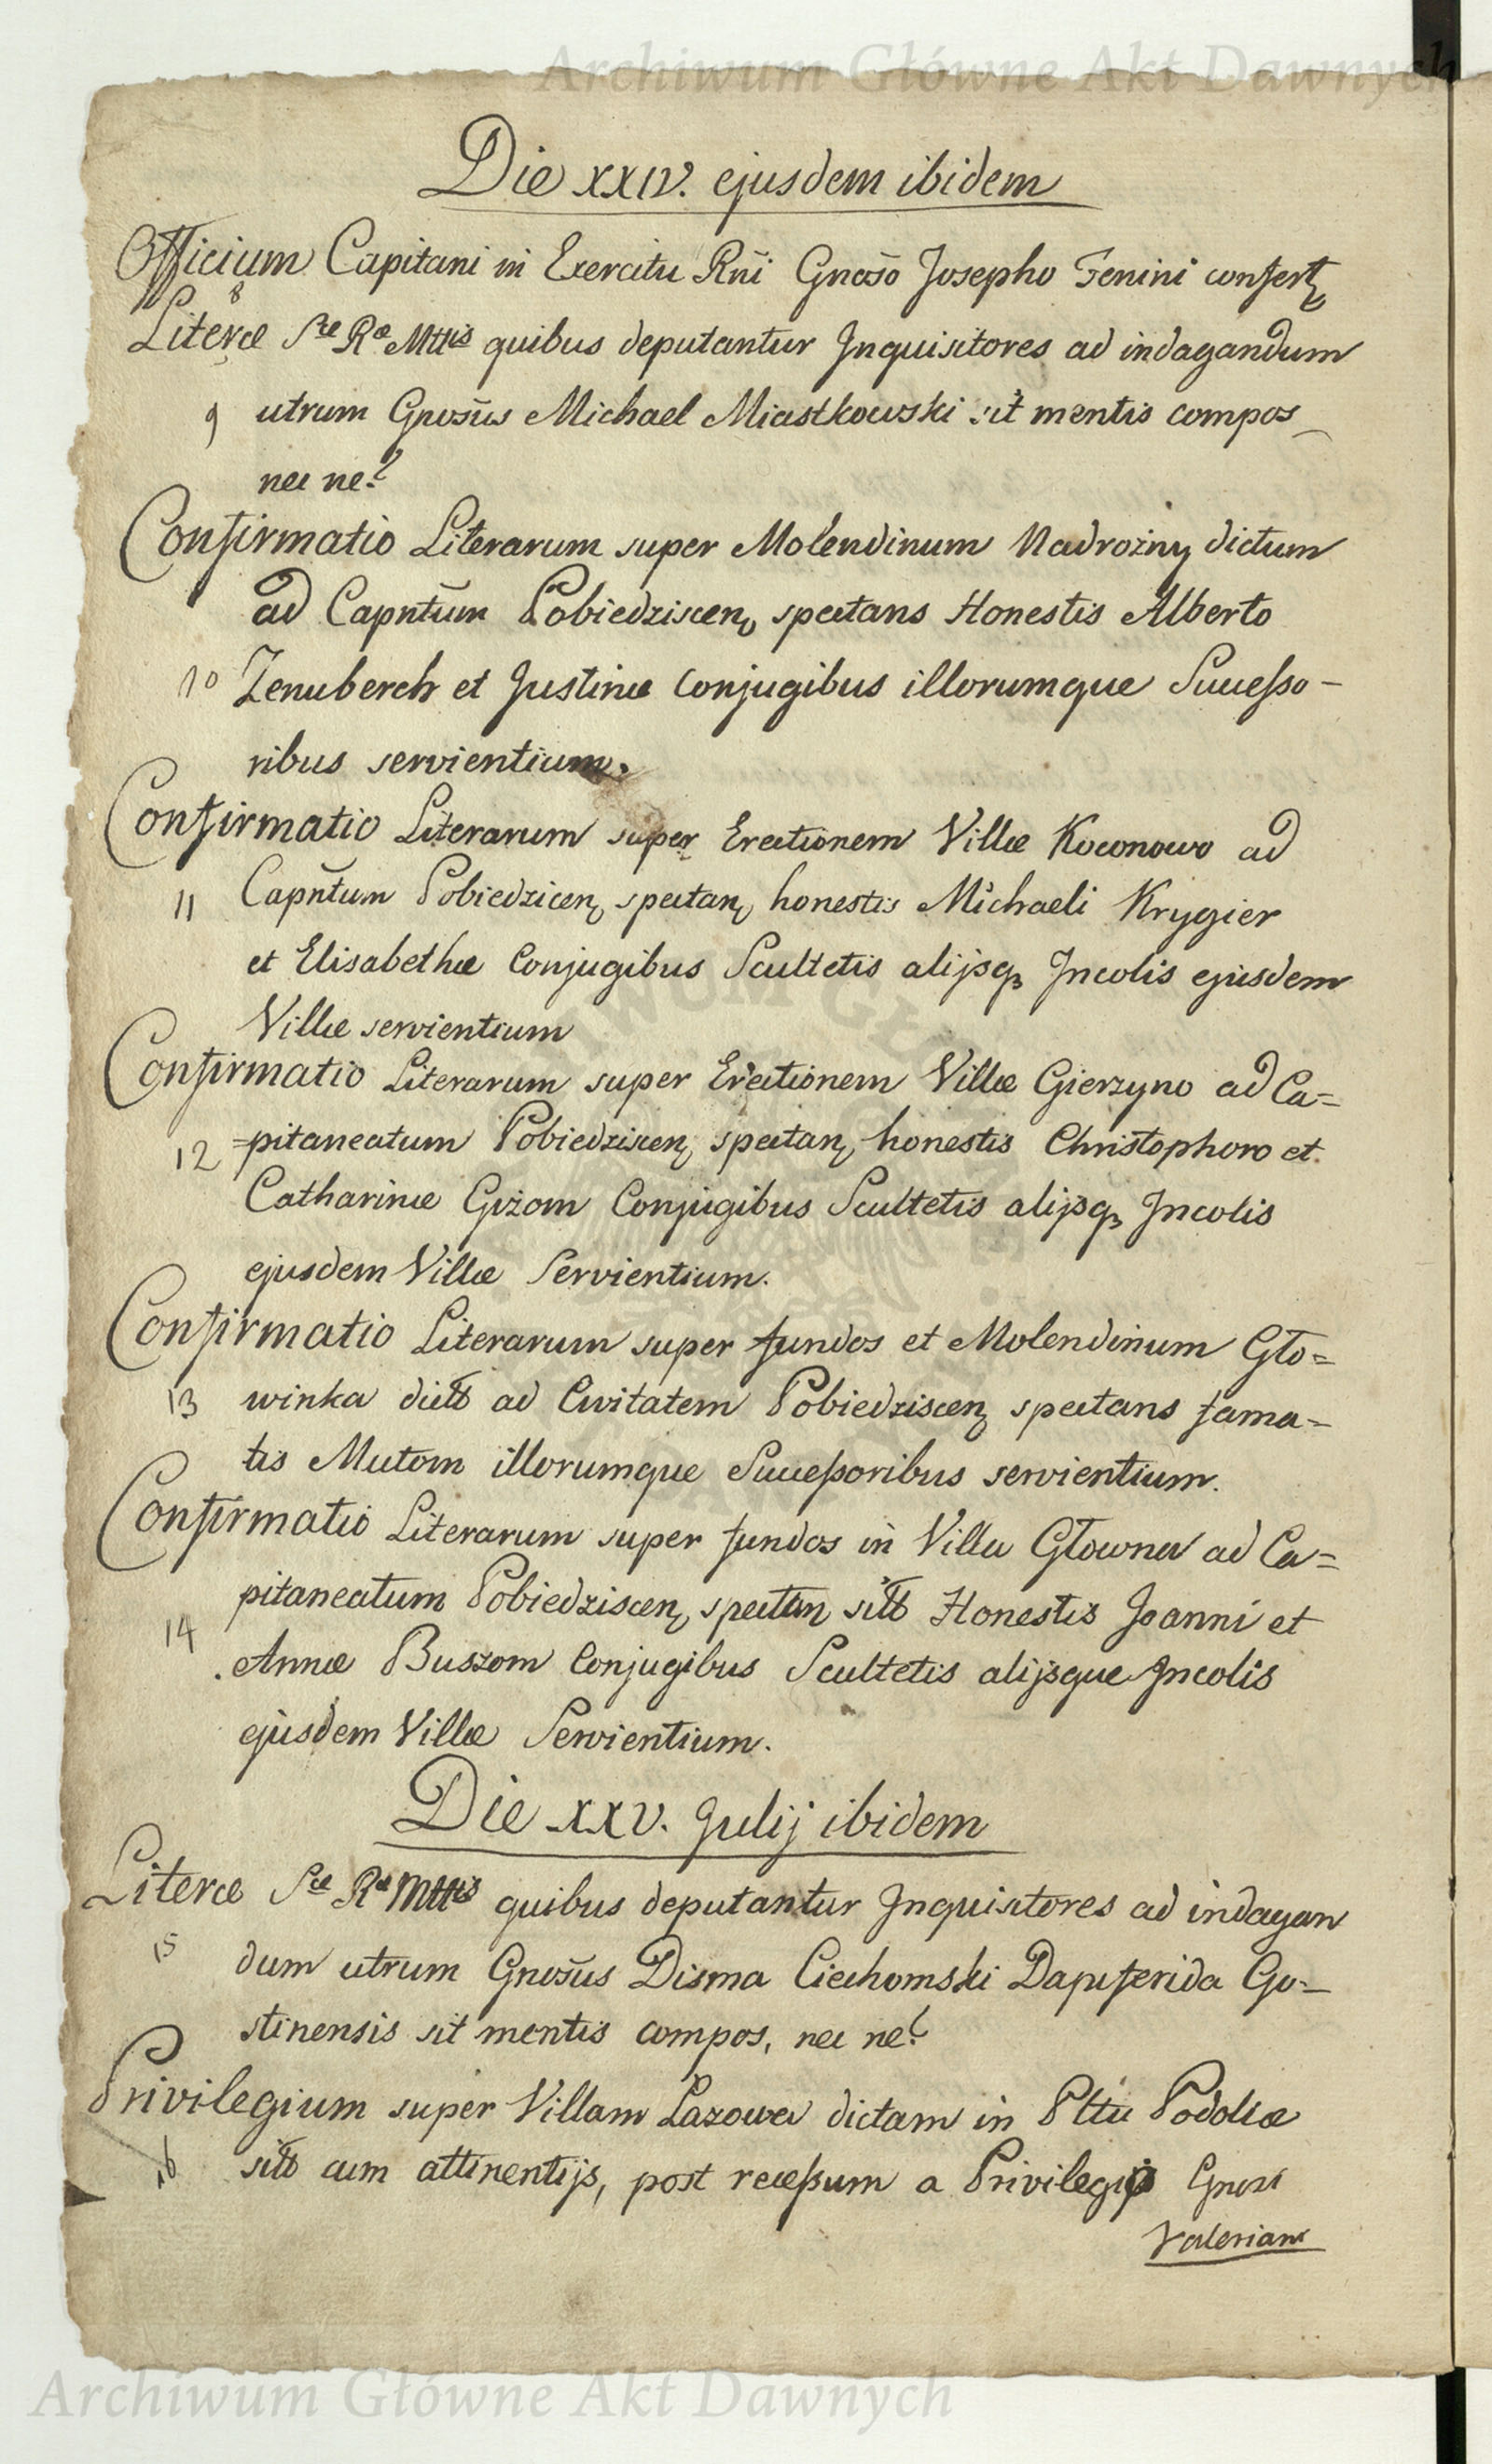 Archiwum Główne Akt Dawnych
Die XXIV. ejusdem ibidem
Officium Capitani in Exercitu Rñi Gnoso Josepho Fenini confert
8
Literæ Sæ Ræ Mttis quibus deputantur Inquisitores ad indagandum
9 utrum Gnosus Michael Miastkowski sit mentis compos
nec ne?
Confirmatio Literarum super Molendinum Nadrożny dictum
ad Capntum Pobiedziscen spectans Honestis Alberto
10 Zenuberch et Justinæ Conjugibus illorumque Successo-
ribus servientium.
Confirmatio Literarum super Erectionem Villæ Koconowo ad
11 Capntum Pobiedzicen spectan honestis Michaeli Krygier
et Elisabethæ Conjugibus Scultetis alijsq3 Incolis ejusdem
Villæ servientium
Confirmatio Literarum super Erectionem Villæ Gierzyno ad Ca=
12 =pitaneatum Pobiedziscen spectan honestis Christophoro et
Catharinæ Gvżom Conjugibus Scultetis alijsq3 Incolis
ejusdem Villæ Servientium.
Confirmatio Literarum super fundos et Molendinum Gło=
13 winka dictt ad Civitatem Pobiedziscen spectans fama=
tis Mutom illorumque Successoribus servientium.
Confirmatio Literarum super fundos in Villa Głowna ad Ca=
pitaneatum Pobiedziscen spectan sitt Honestis Joanni et
14
Annæ Buszom Conjugibus Scultetis alijsque Incolis
ejusdem Villæ Servientium.
Die XXV. Julij ibidem
Literæ Sæ Ræ Mttis quibus deputantur Inquisitores ad indagan
15 dum utrum Gnosus Disma Ciechomski Dapiferida Go-
stinensis sit mentis compos, nec ne?
Privilegium super Villam Lazowa dictam in Pltu Podoliæ
16 sitt cum attinentijs, post recessum a Privilegio Gnosi
Valeriani
Archiwum Główne Akt Dawnych